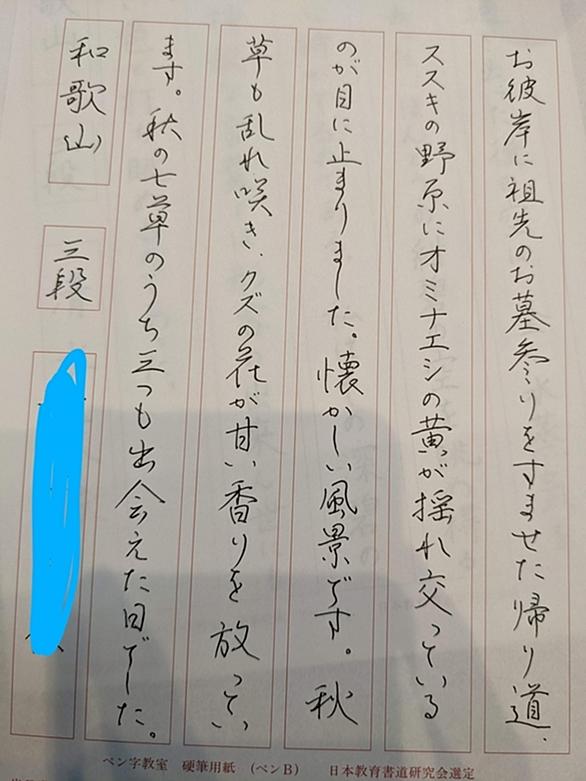 お彼岸に祖先のお墓参りをすませた帰り道、
ススキの野原にオミナエシの黄が揺れ交っている
のが目に止まりました。懐かしい風景です。秋
草も乱れ咲き、クズの花が甘い香りを放ってい
ます。秋の七草のうち三つも出会えた日でした。
和歌山
三段
ペン字教室 硬筆用紙 (ペンB) 日本教育書道研究会選定